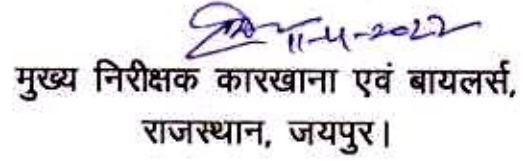 11-4-2022
मुख्य निरीक्षक कारखाना एवं बायलर्स,
राजस्थान, जयपुर।